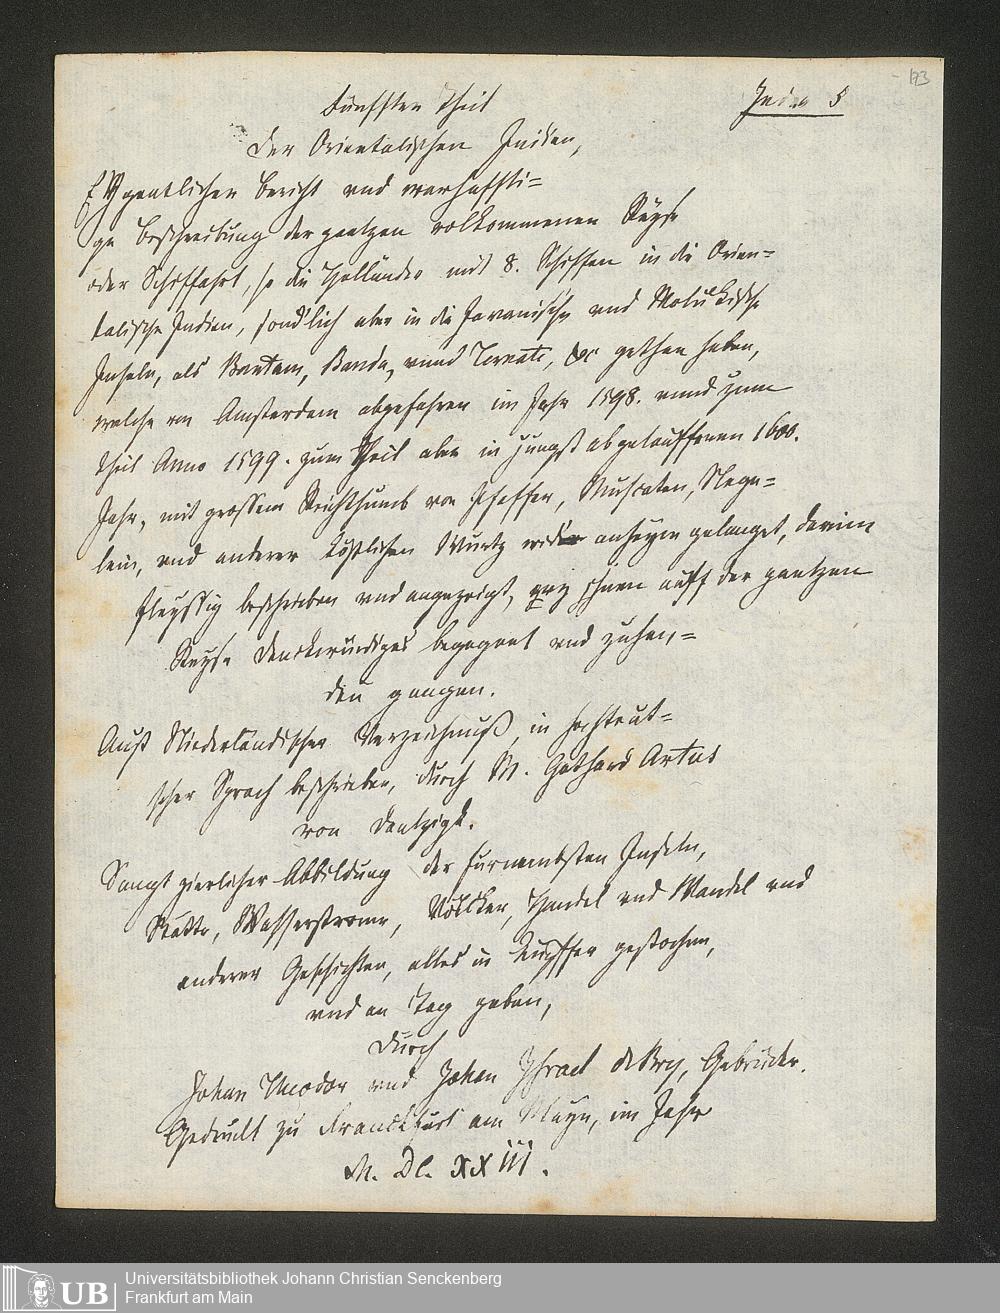 173
Fünfften Theil
India 5
Der Orientalischen Indien,
Eygentlicher Bericht vnd warhaffti=
ge Beschreibung der gantzen volkommenen Reyse
oder Schiffahrt, so die Holländer mit 8. Schiffen in die Orien=
talische Indien, sonderlich aber in die Javanische vnd Molukische
Inseln, als Bantam, Banda, vnnd Ternate, &c gethan haben,
welche von Amsterdam abgefahren im Jahr 1598. vnnd zum
theil Anno 1599. zum Theil aber in jüngst abgelauffenen 1600.
Jahr, mit grossem Reichthumb von Pfeffer, Muscaten, Nege=
lein, vnd anderer köstlichen Wurtz wider anheym gelanget, darinn
fleyssig beschrieben vnd angezeigt, was jhnen auff der gantzen
Reyse denckwürdiges begegnet vnd zuhan=
den gangen.
Auß Niederländischer Verzeichnuß, in hochteut=
scher Sprach beschrieben, durch M. Gothard Artus
von Dantzigk.
Sampt zierlicher Abbildung der furnembsten Inseln,
Stätte, Wasserströme, Völcker, Handel vnd Wandel vnd
anderer Geschichten, alles in Kupffer gestochen,
vnd an Tag geben,
Durch
Johan Theodor vnd Johan Israel de Bry, Gebrüder.
Gedruckt zu Franckfurt am Mayn, im Jahr
M. DC. XXIII.
UB Universitätsbibliothek Johann Christian Senckenberg
Frankfurt am Main